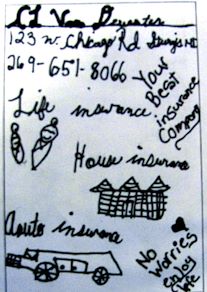 123 W. Chicago Rd Sturgis MI
269-651-8066
Your
Best
insurance
Company
Life insurance
House insurance
Aouto insurance
No
Worries
enjoy
life